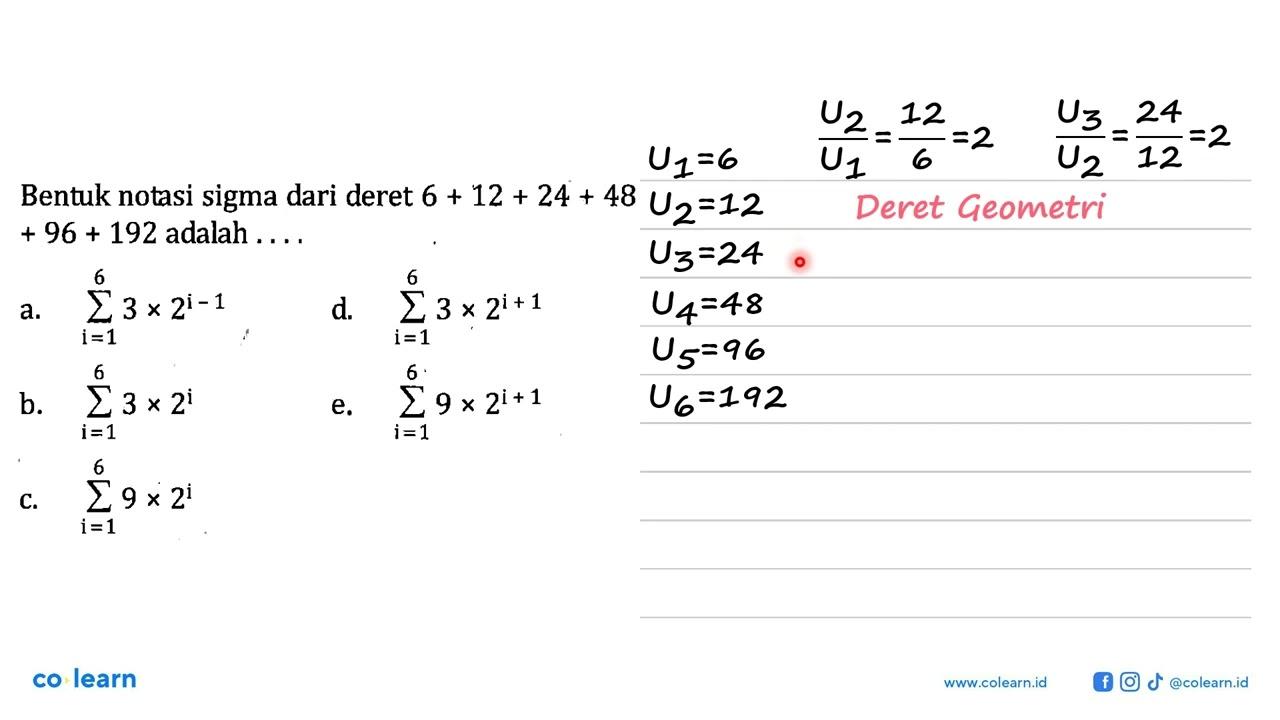 Bentuk notasi sigma dari deret 6 + 12 + 24 + 48
+ 96 + 192 adalah . . . .
a. 6 ∑ i = 1 3 × 2^(i – 1)
d. 6 ∑ i = 1 3 × 2^(i + 1)
b. 6 ∑ i = 1 3 × 2^i
e. 6 ∑ i = 1 9 × 2^(i + 1)
c. 6 ∑ i = 1 9 × 2^i
U₁=6
U₂/U₁ = 12/6 =2
U₃/U₂ = 24/12 =2
U₂=12
Deret Geometri
U₃=24
U₄=48
U₅=96
U₆=192
co learn
www.colearn.id
@colearn.id